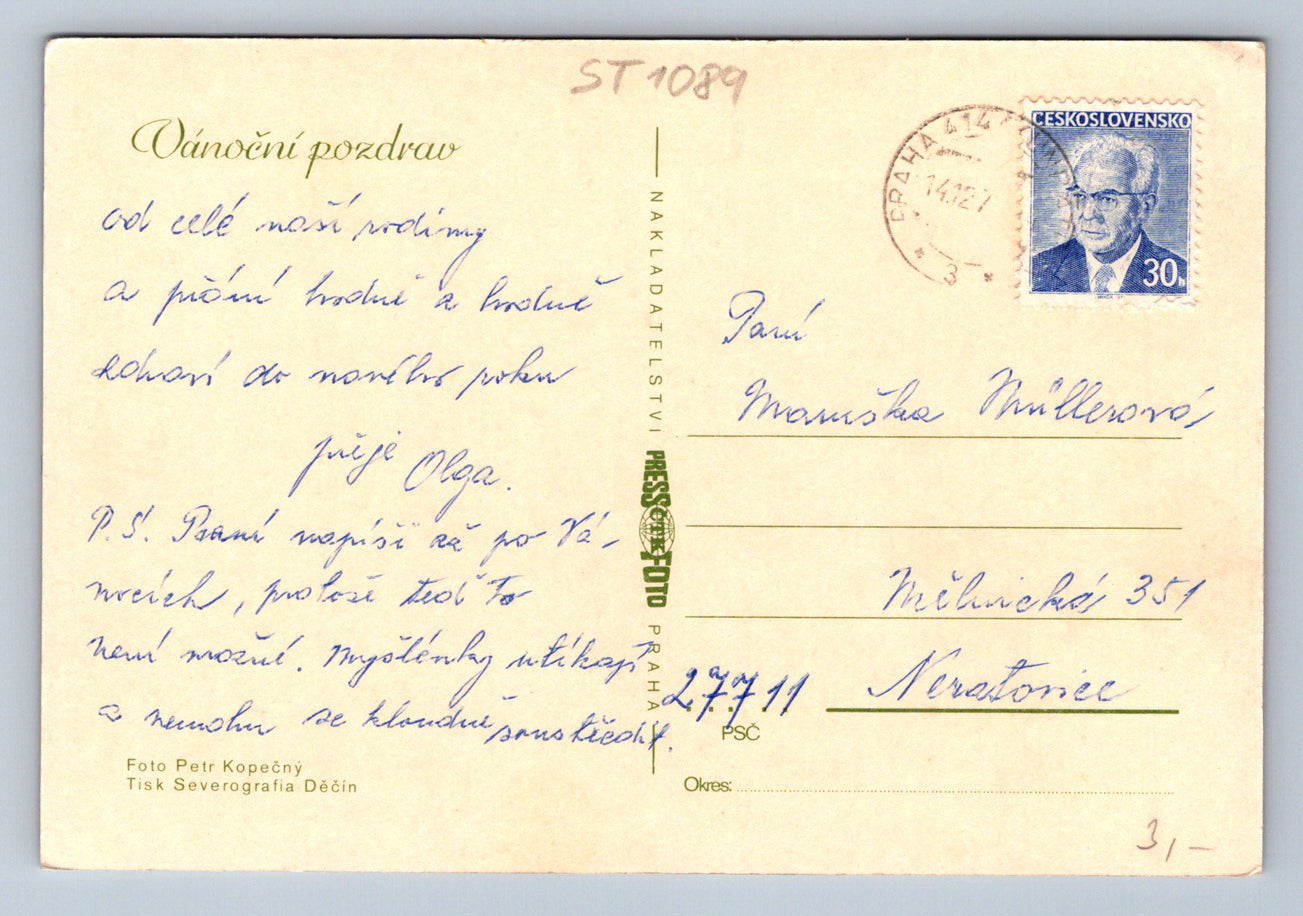 ST 1089
Vánoční pozdrav
od celé naší rodiny
a přání hodně a hodně
zdraví do nového roku
přeje Olga.
P.S. Psaní napíši až po Vá-
nocích, protože teď to
není možné. Myšlénky utíkají
a nemohu se kloudně soustředit.
Foto Petr Kopečný
Tisk Severografia Děčín
NAKLADATELSTVÍ PRESSFOTO PRAHA
ČTK
PRAHA 414
14.12.7
* 3 *
ČESKOSLOVENSKO
30h
Paní
Maruška Müllerová
Mělnická 351
277 11 Neratovice
PSČ
Okres:
3,-